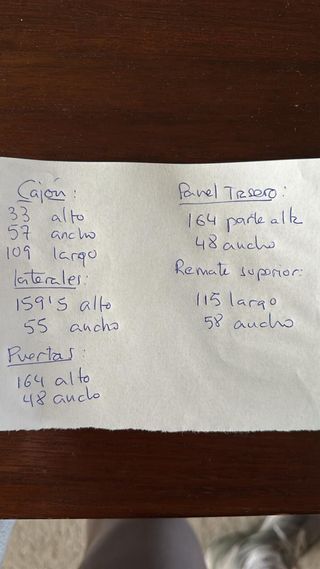 Cajón:
33 alto
57 ancho
109 largo
laterales:
159'5 alto
55 ancho
Puertas:
164 alto
48 ancho
Panel Trasero:
164 parte alta
48 ancho
Remate superior:
115 largo
58 ancho